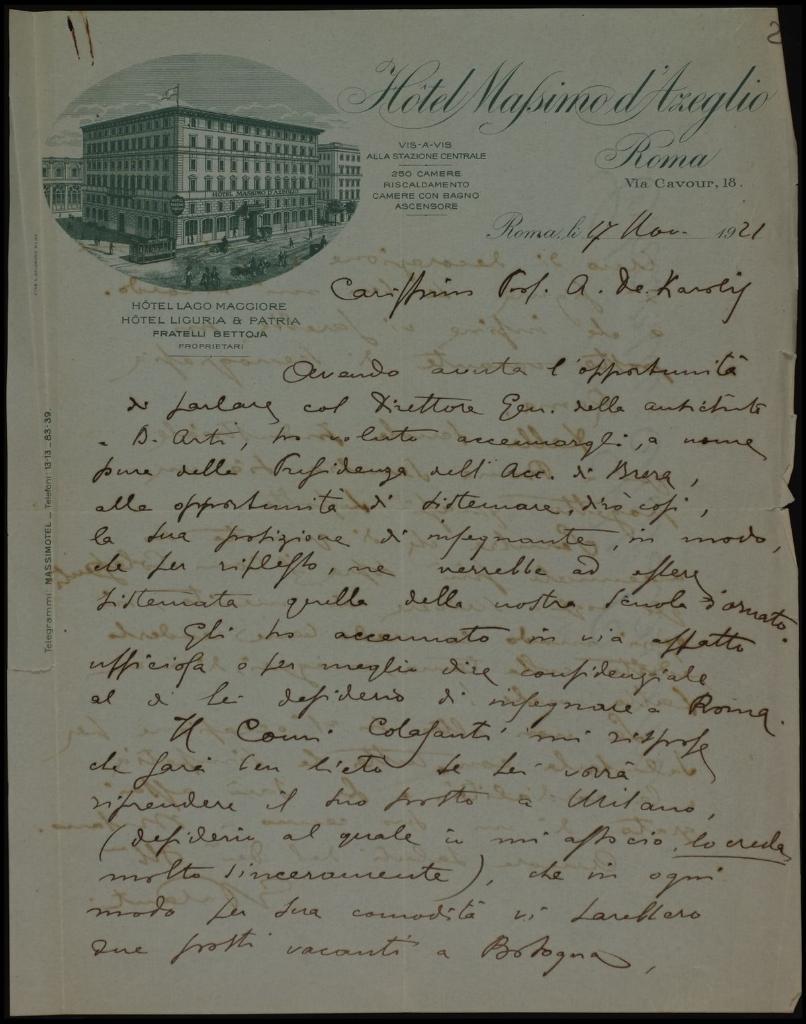 2
Hôtel Massimo d'Azeglio
Roma
Via Cavour, 18.
VIS-A-VIS
ALLA STAZIONE CENTRALE
250 CAMERE
RISCALDAMENTO
CAMERE CON BAGNO
ASCENSORE
HOTEL MASSIMO D'AZEGLIO
HÔTEL LAGO MAGGIORE
HÔTEL LIGURIA & PATRIA
FRATELLI BETTOJA
PROPRIETARI
Telegrammi: MASSIMOTEL _ Telefoni: 13-13 _ 83-39.
Roma, li 17 Nov. 1921
Carissimo Prof. A. De Karolis
Avendo avuta l'opportunità
di parlare col Direttore Gen. delle antichità
e B. Arti, ho voluto accennargli, a nome
pure della Presidenza dell'Acc. di Brera,
alla opportunità di sistemare, dirò così,
la sua posizione di insegnante, in modo,
che per riflesso, ne verrebbe ad essere
sistemata quella della nostra Scuola d'ornato.
Gli ho accennato in via affatto
ufficiosa o per meglio dire confidenziale
al di lei desiderio di insegnare a Roma.
Il Comm. Colasanti mi rispose
che sarà ben lieto se Lei vorrà
riprendere il suo posto a Milano,
(desiderio al quale io mi associo, lo creda
molto sinceramente), che in ogni
modo per sua comodità vi sarebbero
due posti vacanti a Bologna,